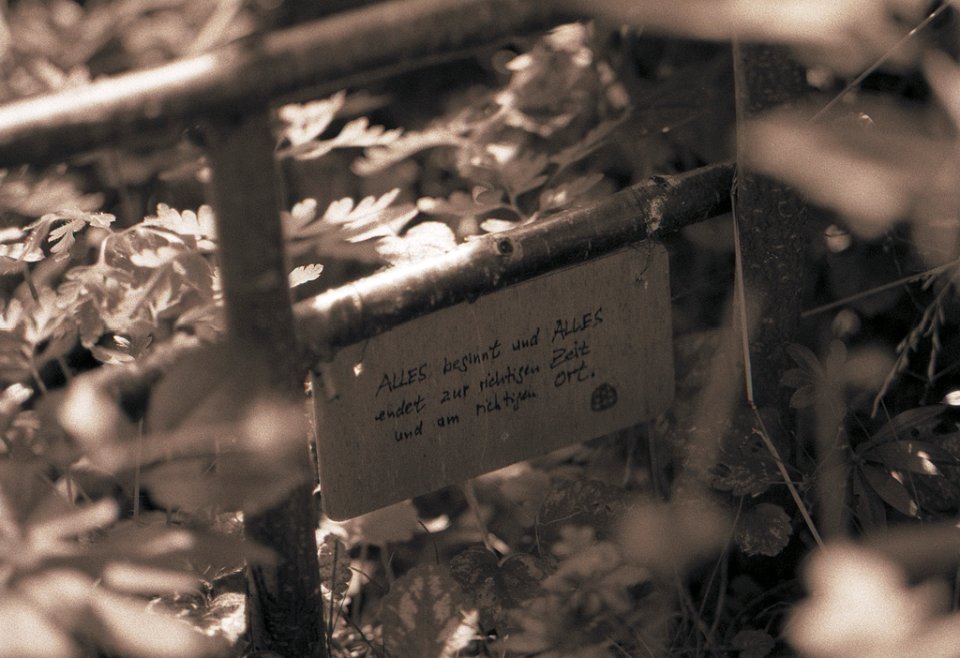 ALLES beginnt und ALLES
endet zur richtigen Zeit
und am richtigen Ort.